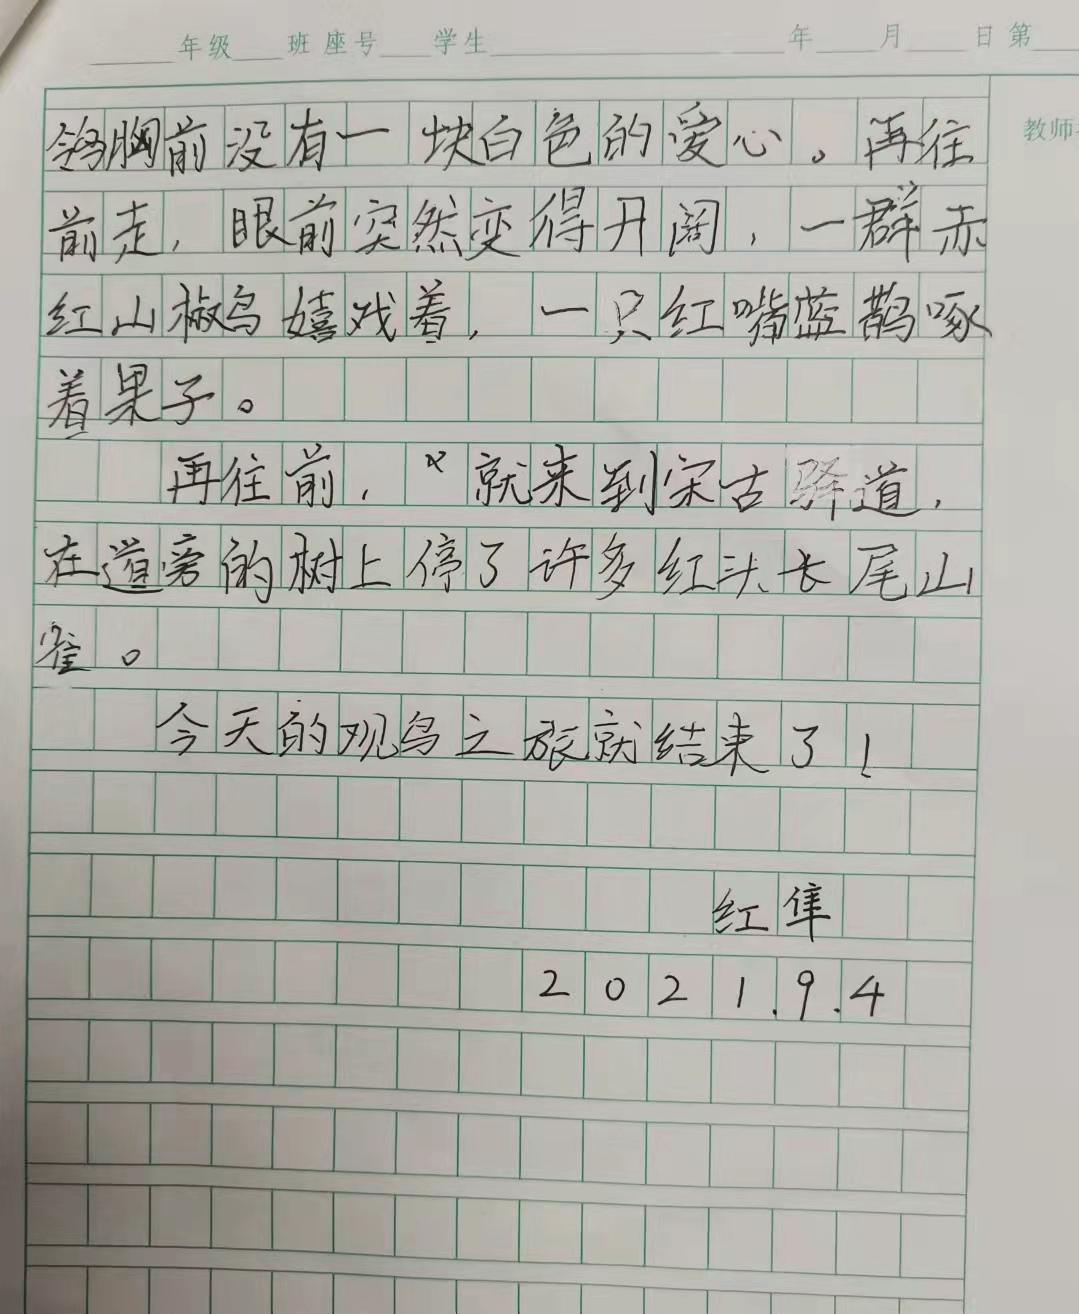 年级 班 座号 学生 年 月 日 第
教师
鸲胸前没有一块白色的爱心。再往
前走,眼前突然变得开阔,一群赤
红山椒鸟嬉戏着,一只红嘴蓝鹊啄
着果子。
再往前,就来到宋古驿道,
在道旁的树上停了许多红头长尾山
雀。
今天的观鸟之旅就结束了!
红隼
2021.9.4